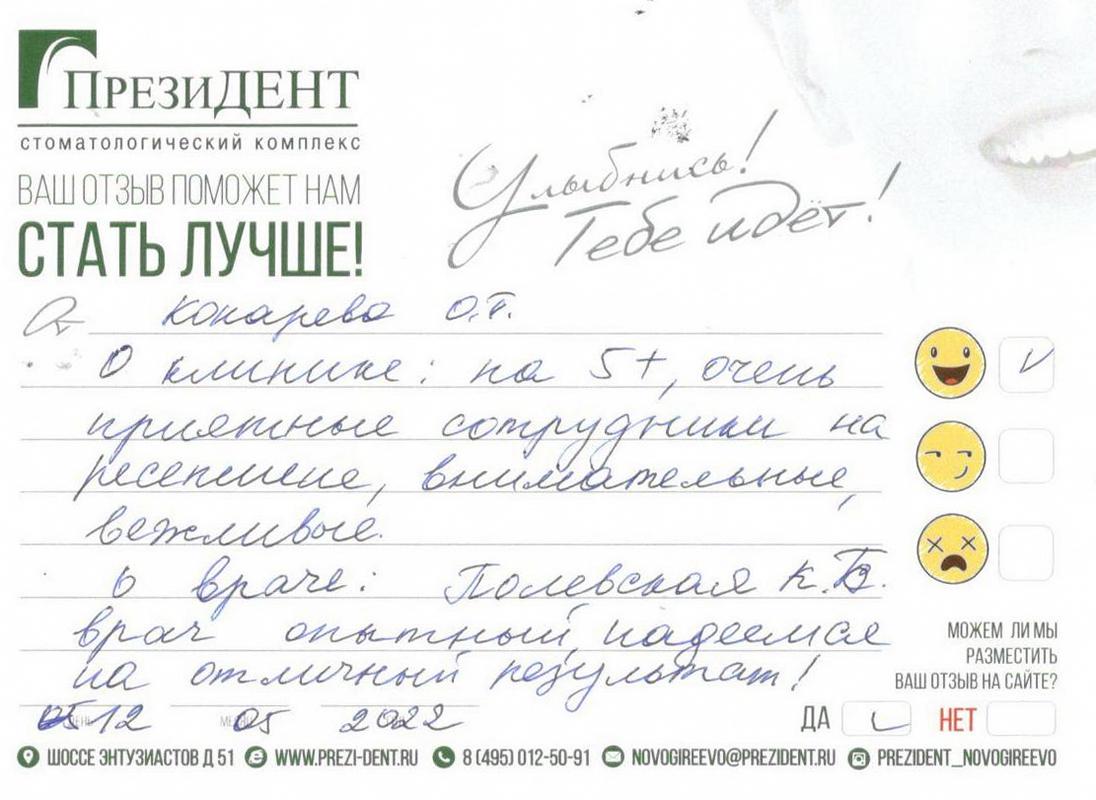 ПрезиДЕНТ
стоматологический комплекс
ВАШ ОТЗЫВ ПОМОЖЕТ НАМ
СТАТЬ ЛУЧШЕ!
Улыбнись!
Тебе идёт!
От Кокарева О.Г.
О клинике: на 5+, очень
приятные сотрудники на
ресепшене, внимательные,
вежливые.
о враче: Полевская К.В.
врач опытный, надеемся
на отличный результат!
12 05 2022
МОЖЕМ ЛИ МЫ
РАЗМЕСТИТЬ
ВАШ ОТЗЫВ НА САЙТЕ?
ДА НЕТ
ШОССЕ ЭНТУЗИАСТОВ Д 51 WWW.PREZI-DENT.RU 8 (495) 012-50-91 NOVOGIREEVO@PREZIDENT.RU PREZIDENT_NOVOGIREEVO